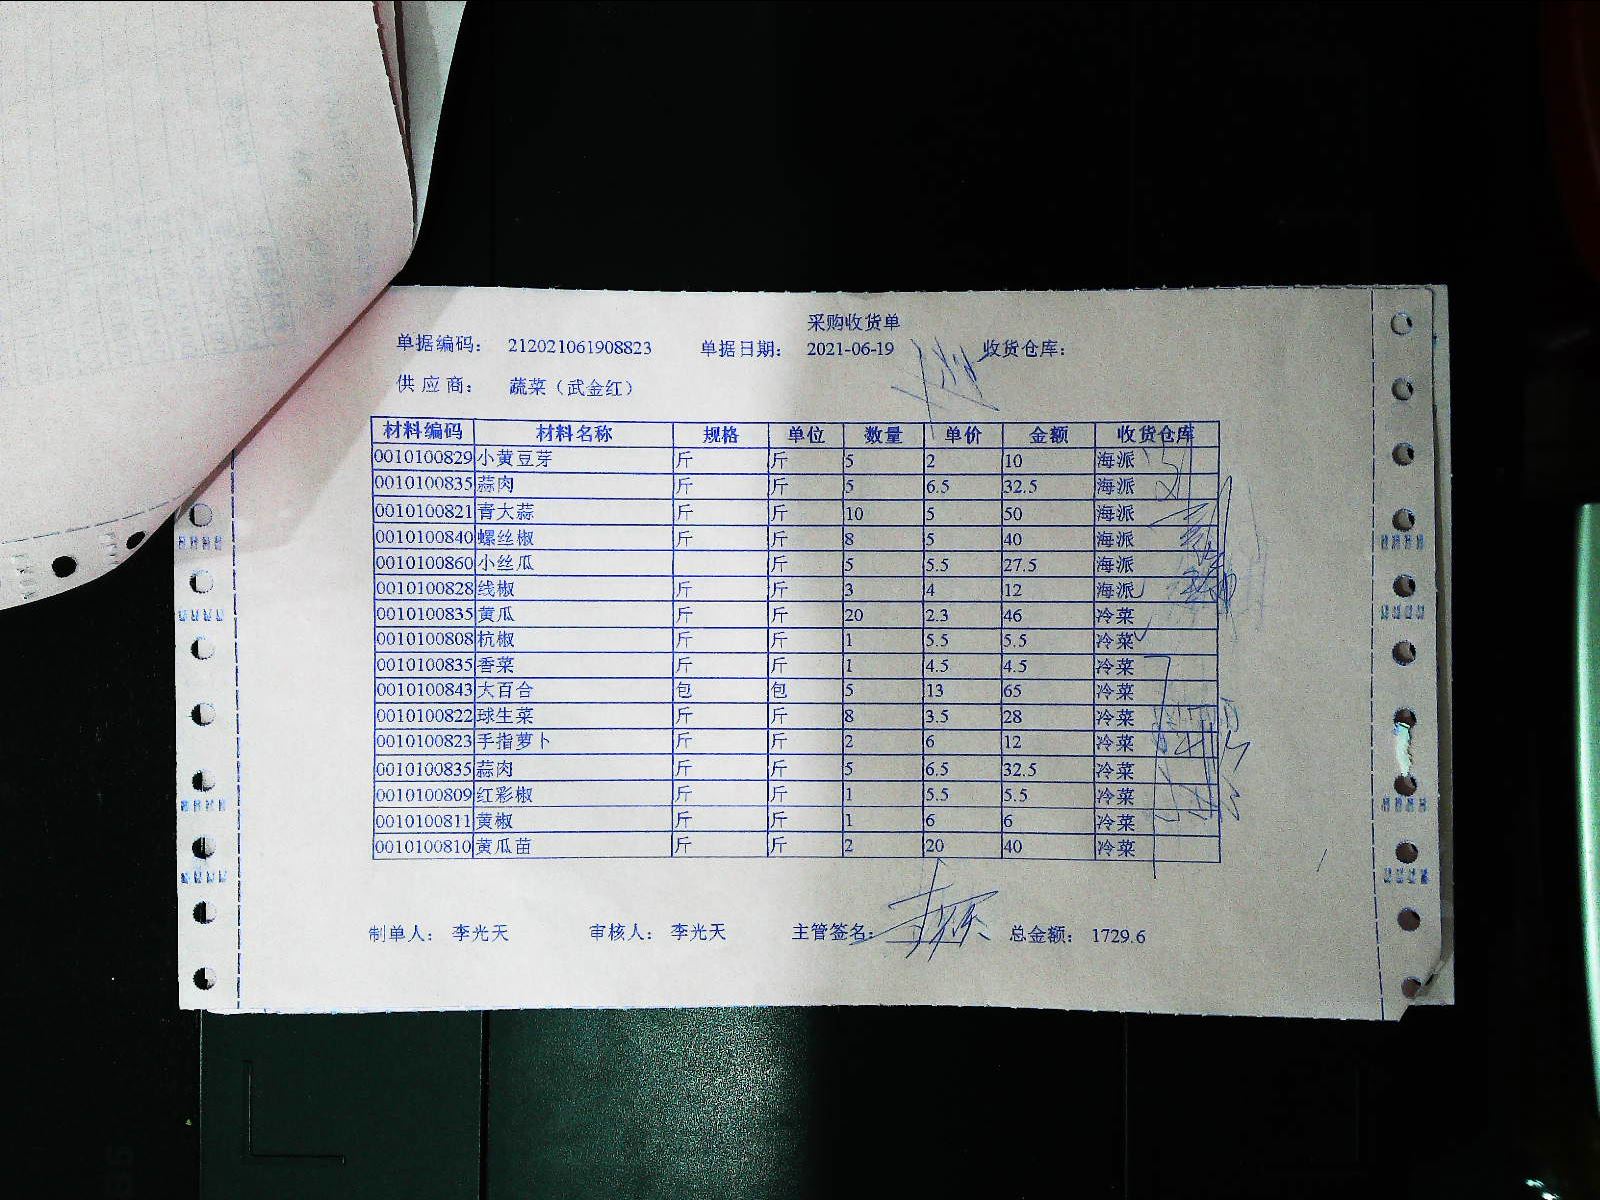 采购收货单
单据编码： 212021061908823 单据日期： 2021-06-19 收货仓库：
供 应 商： 蔬菜（武金红）
材料编码 材料名称 规格 单位 数量 单价 金额 收货仓库
0010100829 小黄豆芽 斤 斤 5 2 10 海派
0010100835 蒜肉 斤 斤 5 6.5 32.5 海派
0010100821 青大蒜 斤 斤 10 5 50 海派
0010100840 螺丝椒 斤 斤 8 5 40 海派
0010100860 小丝瓜 斤 5 5.5 27.5 海派
0010100828 线椒 斤 斤 3 4 12 海派
0010100835 黄瓜 斤 斤 20 2.3 46 冷菜
0010100808 杭椒 斤 斤 1 5.5 5.5 冷菜
0010100835 香菜 斤 斤 1 4.5 4.5 冷菜
0010100843 大百合 包 包 5 13 65 冷菜
0010100822 球生菜 斤 斤 8 3.5 28 冷菜
0010100823 手指萝卜 斤 斤 2 6 12 冷菜
0010100835 蒜肉 斤 斤 5 6.5 32.5 冷菜
0010100809 红彩椒 斤 斤 1 5.5 5.5 冷菜
0010100811 黄椒 斤 斤 1 6 6 冷菜
0010100810 黄瓜苗 斤 斤 2 20 40 冷菜
制单人： 李光天 审核人： 李光天 主管签名： 总金额： 1729.6